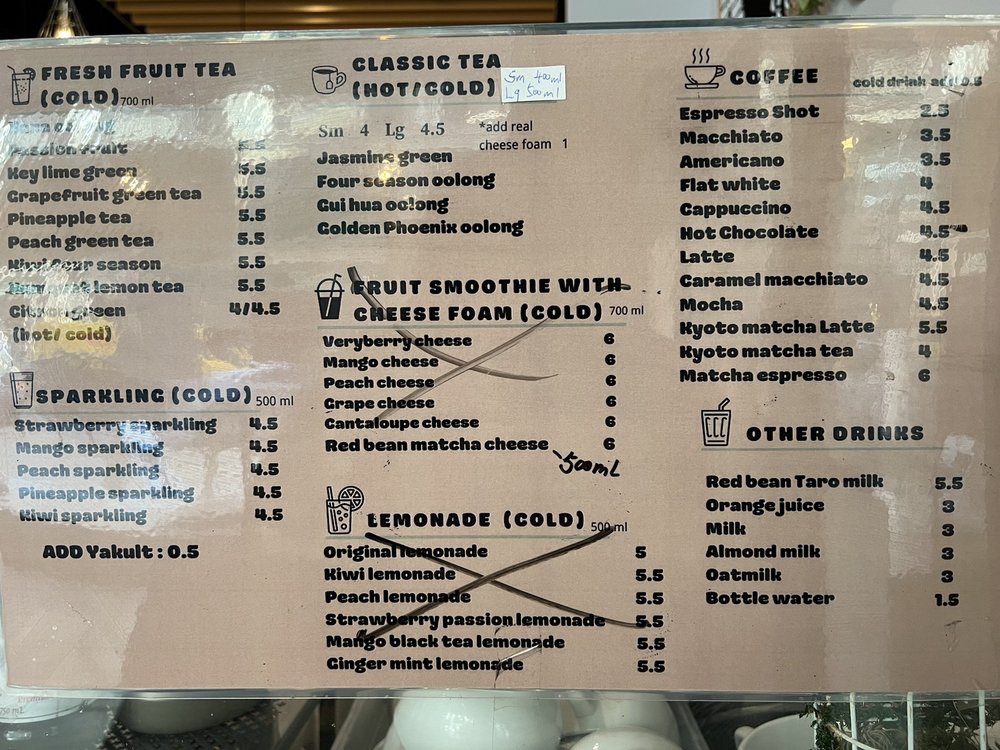 FRESH FRUIT TEA
(COLD) 700 ml
Passion fruit 5.5
Key lime green 5.5
Grapefruit green tea 5.5
Pineapple tea 5.5
Peach green tea 5.5
Kiwi four season 5.5
lemon tea 5.5
Citron green 4/4.5
(hot/ cold)
SPARKLING (COLD) 500 ml
Strawberry sparkling 4.5
Mango sparkling 4.5
Peach sparkling 4.5
Pineapple sparkling 4.5
Kiwi sparkling 4.5
ADD Yakult : 0.5
CLASSIC TEA
(HOT/COLD)
Sm 400ml
Lg 500ml
Sm 4 Lg 4.5
*add real
cheese foam 1
Jasmine green
Four season oolong
Gui hua oolong
Golden Phoenix oolong
FRUIT SMOOTHIE WITH
CHEESE FOAM (COLD) 700 ml
Veryberry cheese 6
Mango cheese 6
Peach cheese 6
Grape cheese 6
Cantaloupe cheese 6
Red bean matcha cheese 6
-500mL
LEMONADE (COLD) 500 ml
Original lemonade 5
Kiwi lemonade 5.5
Peach lemonade 5.5
Strawberry passion lemonade 5.5
Mango black tea lemonade 5.5
Ginger mint lemonade 5.5
COFFEE cold drink add 0.5
Espresso Shot 2.5
Macchiato 3.5
Americano 3.5
Flat white 4
Cappuccino 4.5
Hot Chocolate 4.5
Latte 4.5
Caramel macchiato 4.5
Mocha 4.5
Kyoto matcha Latte 5.5
Kyoto matcha tea 4
Matcha espresso 6
OTHER DRINKS
Red bean Taro milk 5.5
Orange juice 3
Milk 3
Almond milk 3
Oatmilk 3
Bottle water 1.5
750 mL